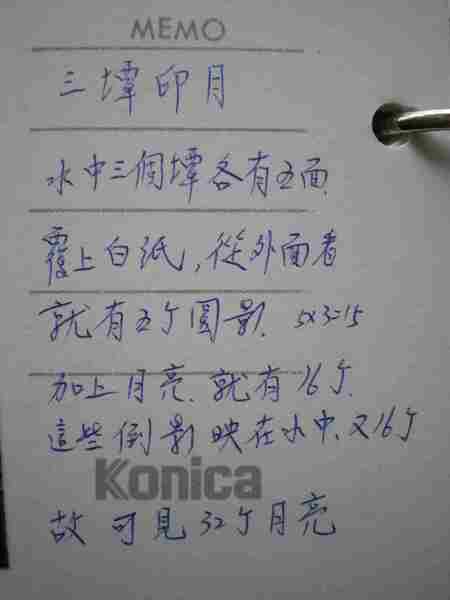 MEMO
三壇印月
水中三個壇各有五面
覆上白紙，從外面看
就有五个圓影. 5x3=15
加上月亮.就有16个.
這些倒影映在水中、又16个
Konica
故可見32个月亮